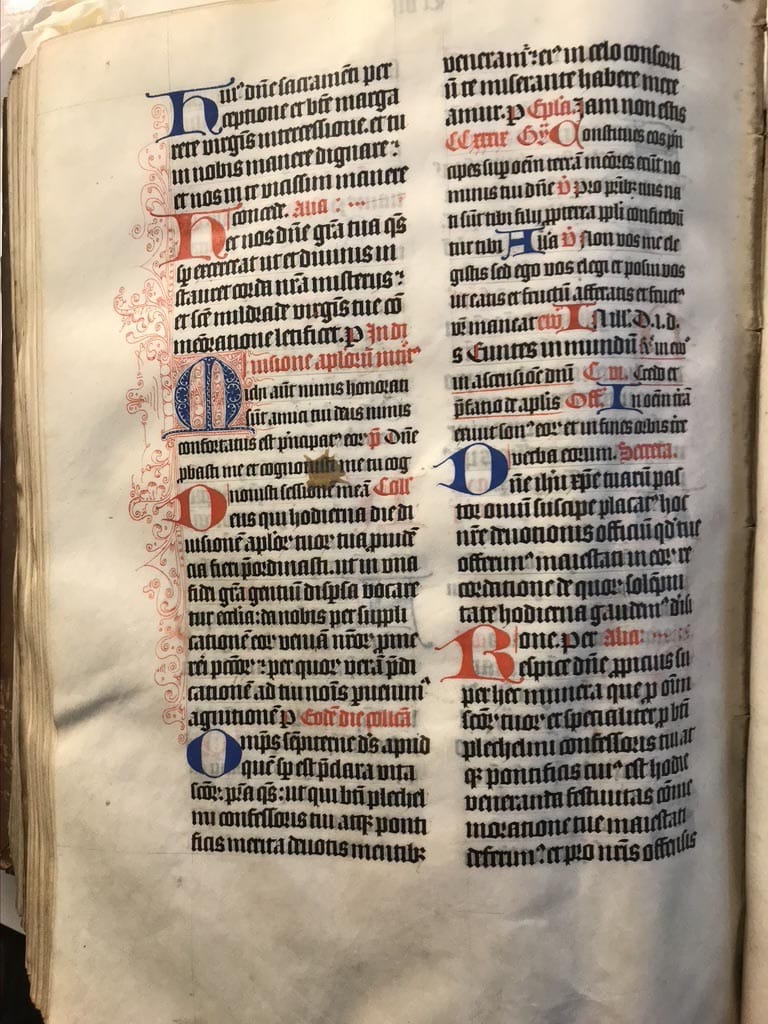 Huiꝰ dn̄e sacramēti per
ceptione et bt̄e marga
rete virgīs intercessione. et tu
in nobis manere dignare ⁊
et nos in te vicissim manere
concede. Alia :
Het nos dn̄e gr̄a tua q̄s
sp̄ exerceat ut et diuinis in
stauret corda nr̄a misterijs ⁊
et sc̄e mildrade virgīs tue cō
mēoratione letificet. p̄ In di
uisione aplōrū intͥtꝰ
Michi aūt nimis honorati
sūt amici tui deus nimis
confortatus est pͥncipatꝰ eoꝝ p̄ Dn̄e
ꝓbasti me et cognouisti me tu cog
nouisti sessionē meā Coll̄
Deus qui hodierna die di
uisionē aplōꝝ tuoꝝ tua ꝓuidē
cia fieri p̄ordinasti. ut in vna
fidei gr̄a gentiū disp̄sa vocare
tur ecclīa: da nobis per suppli
cationē eoꝝ veniā nr̄oꝝ ꝓme
reri pc̄oꝝ ⁊ per quoꝝ verā p̄di
cationē ad tui noīs ꝑuenimꝰ
agnitionē p̄ Eodē die collcā
Omp̄s sēpiterne d̄s apud
quē sp̄ est p̄clara vita
sc̄oꝝ. p̄sta q̄s: ut qui bt̄i plechel
mi confessoris tui atqꝫ ponti
ficis merita deuotis mentibꝫ
veneramꝰ: eiꝰ in celo consorti
ū te miserante habere mere
amur. p̄ Ep̄la. Iam non estis
CCxxix Gͬ Constitues eos p̄n
cipes sup̄ oēm terrā mēores erūt no
minis tui dn̄e v̄ Pro pr̄ibꝫ tuis na
ti sūt tibi filij ꝓpterea ppl̄i confitebū
tur tibi Alla v̄ Non vos me ele
gistis sed ego vos elegi et posui vos
ut eatis et fructū afferatis et fructꝰ
vr̄ maneat ew̄ In ill̄. D.i.d.
s Euntes in mundū
in ascensiōe dn̄i C. Credo et
p̄fatio de aplīs Off̄ In oēm trā
exiuit sonꝰ eoꝝ et in fines orbis trē
verba eorum. Secreta.
Dn̄e ihū xp̄e tuarū pas
tor ouiū suscipe placatꝰ hoc
nr̄e deuotionis officiū qd̄ tue
offerimꝰ maiestati in eoꝝ re
cordatione de quoꝝ solēpni
tate hodierna gaudemꝰ
one. Per Alia:
Respice dn̄e ꝓpicius su
per hec munera que p̄ oīm
sc̄oꝝ tuoꝝ et specialiter ꝓ bt̄i
plechelmi confessoris tui at
qꝫ pontificis cuiꝰ est hodie
veneranda festiuitas cōme
moratione tue maiestati
deferimꝰ: et pro nr̄is offensis